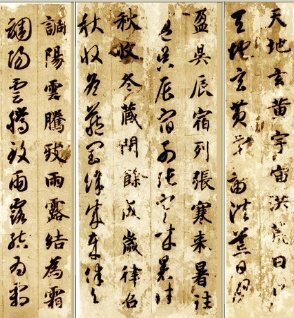 天地玄黄宇宙洪荒日月
天地玄黄宇宙洪荒日月
盈昃辰宿列張寒来暑往
盈昃辰宿列張寒来暑往
秋收冬藏閏餘成歲律呂
秋收冬藏閏餘成歲律呂
調陽雲騰致雨露結為霜
調陽雲騰致雨露結為霜